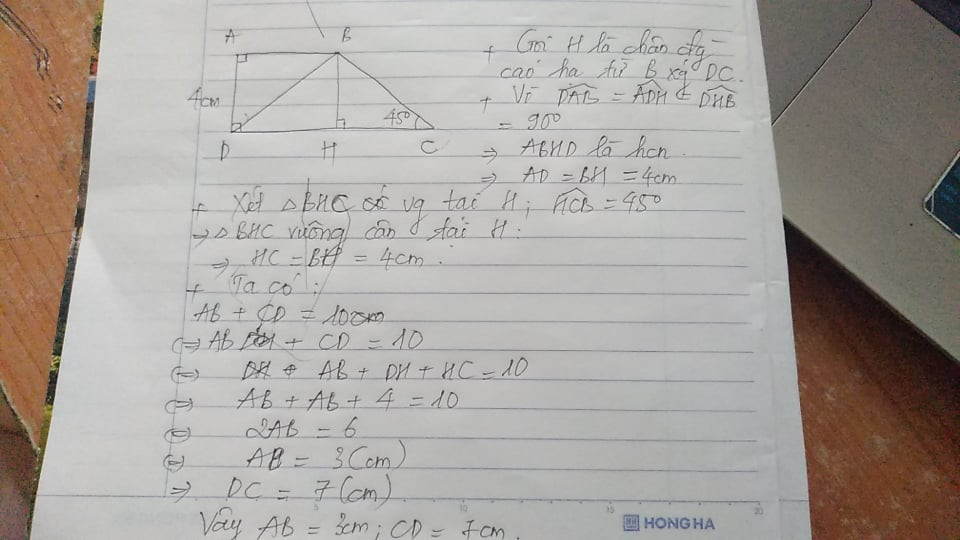 A B
4cm
45°
D H C
+ Gọi H là chân đg
cao hạ từ B xg DC.
+ Vì DAB = ADH = DHB
= 90°
⇒ ABHD là hcn.
⇒ AD = BH = 4cm
+ Xét △BHC có vg tại H; HCB = 45°
⇒ △BHC vuông cân tại H:
⇒ HC = BH = 4cm.
+ Ta có:
AB + CD = 10cm
⇔ AB + CD = 10
⇔ AB + DH + HC = 10
⇔ AB + AB + 4 = 10
⇔ 2AB = 6
⇔ AB = 3 (cm)
⇒ DC = 7 (cm)
Vậy AB = 3cm; CD = 7cm.
HONG HA
5 10 15 20